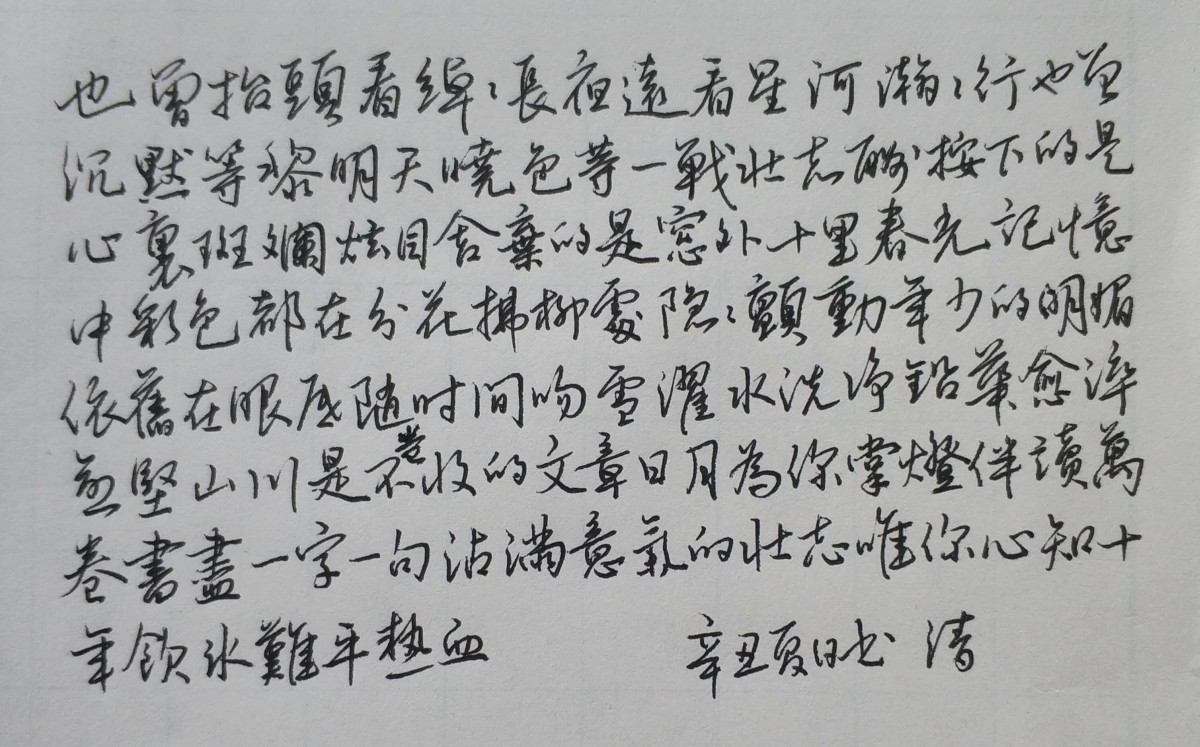 也曾抬頭看綽綽長夜遠看星河瀚瀚行也曾
沉默等黎明天曉色等一戰壯志酬按下的是
心裏斑斕炫目舍棄的是窓外十里春光記憶
中彩色都在分花拂柳處隐隐顫動年少的明媚
依舊在眼底随时间吻雪濯水洗净鉛華愈淬
愈堅山川是不卷收的文章日月為你掌燈伴讀萬
卷書盡一字一句沾满意氣的壯志唯你心知十
年飲冰難平热血
辛丑夏日书 清